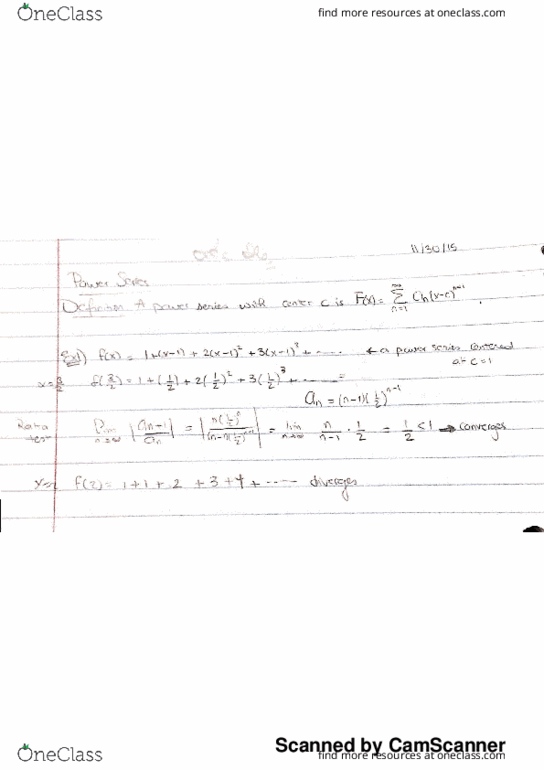 OneClass find more resources at oneclass.com
11/30/15
Power Series
Definition A power series with center c is F(x) = ∞ Σ n=1 Cn(x-c)^n-1 .
Ex1) f(x) = 1+(x-1) + 2(x-1)² + 3(x-1)³ + ...... ← a power series centered
at c=1
x=3/2 f(3/2) = 1 + (1/2) + 2(1/2)² + 3(1/2)³ + ....... =
an = (n-1)(1/2)^n-1
Ratio test lim n→∞ |an+1/an| = |n(1/2)^n/(n-1)(1/2)^n-1| = lim n→∞ n/n-1 · 1/2 = 1/2 < 1 → converges
f(2) = 1 + 1 + 2 + 3 + 4 + ...... diverges
Scanned by CamScanner
OneClass find more resources at oneclass.com